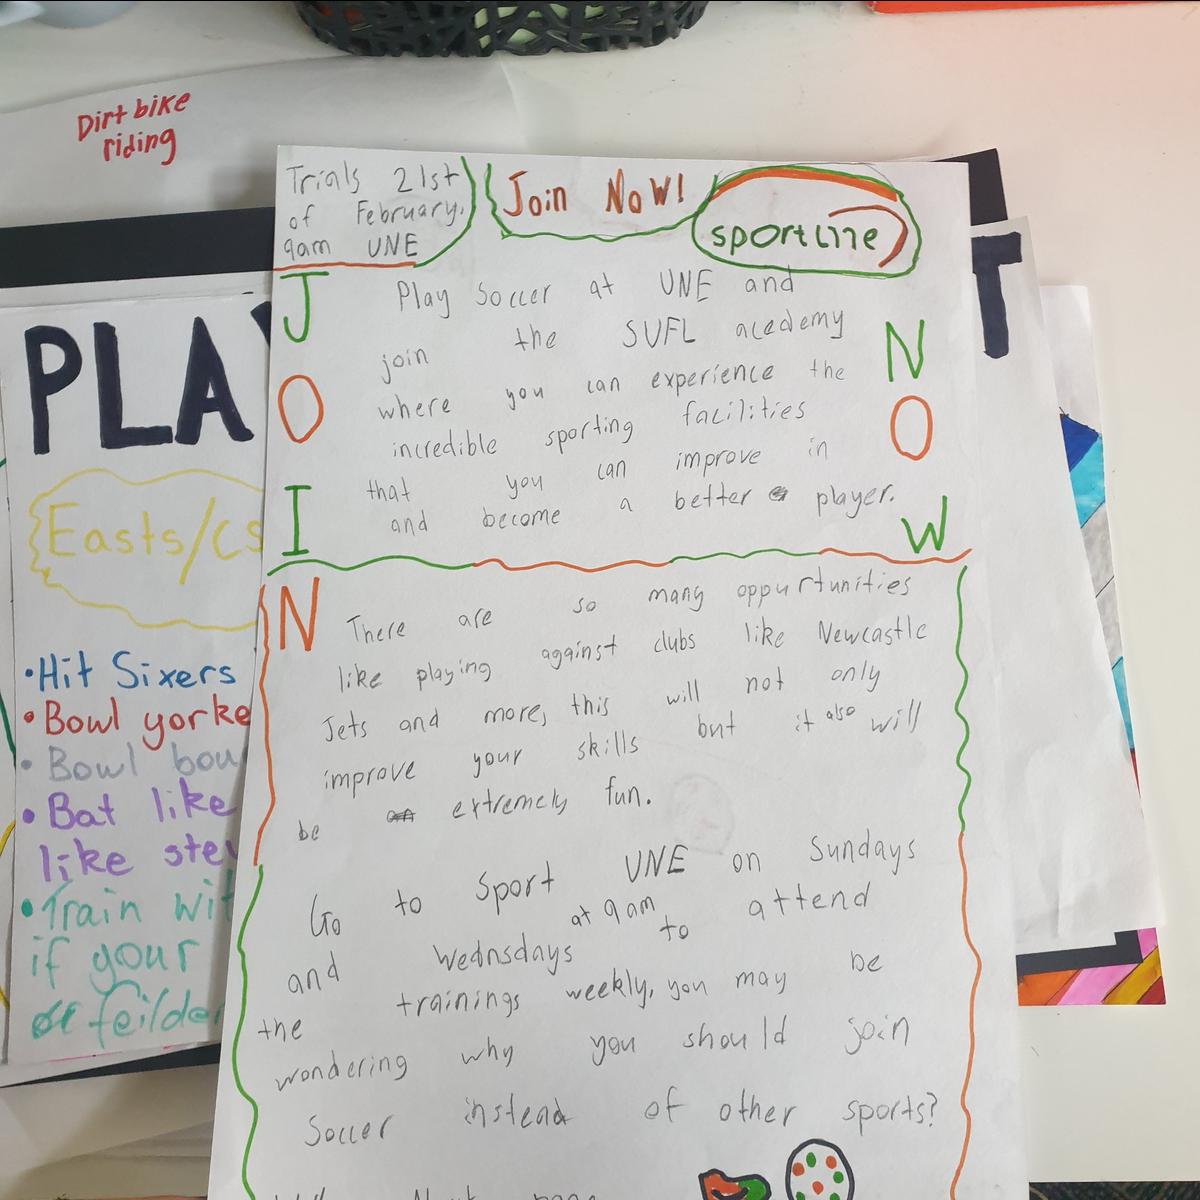 Dirt bike
riding
Trials 21st
of February.
9am UNE
Join NoW!
sportline
J
O
I
N
N
O
W
Play Soccer at UNE and
join the SUFL academy
where you can experience the
incredible sporting facilities
that you can improve in
and become a better player.
There are so many oppurtunities
like playing against clubs like Newcastle
Jets and more, this will not only
improve your skills but it also will
be extremely fun.
Go to Sport UNE on Sundays
and Wednsdays at 9am to attend
the trainings weekly, you may be
wondering why you should join
Soccer instead of other sports?
PLA
T
Easts/Cs
•Hit Sixers
•Bowl yorke
•Bowl bou
•Bat like
like ste
•Train wit
if your
or feilde